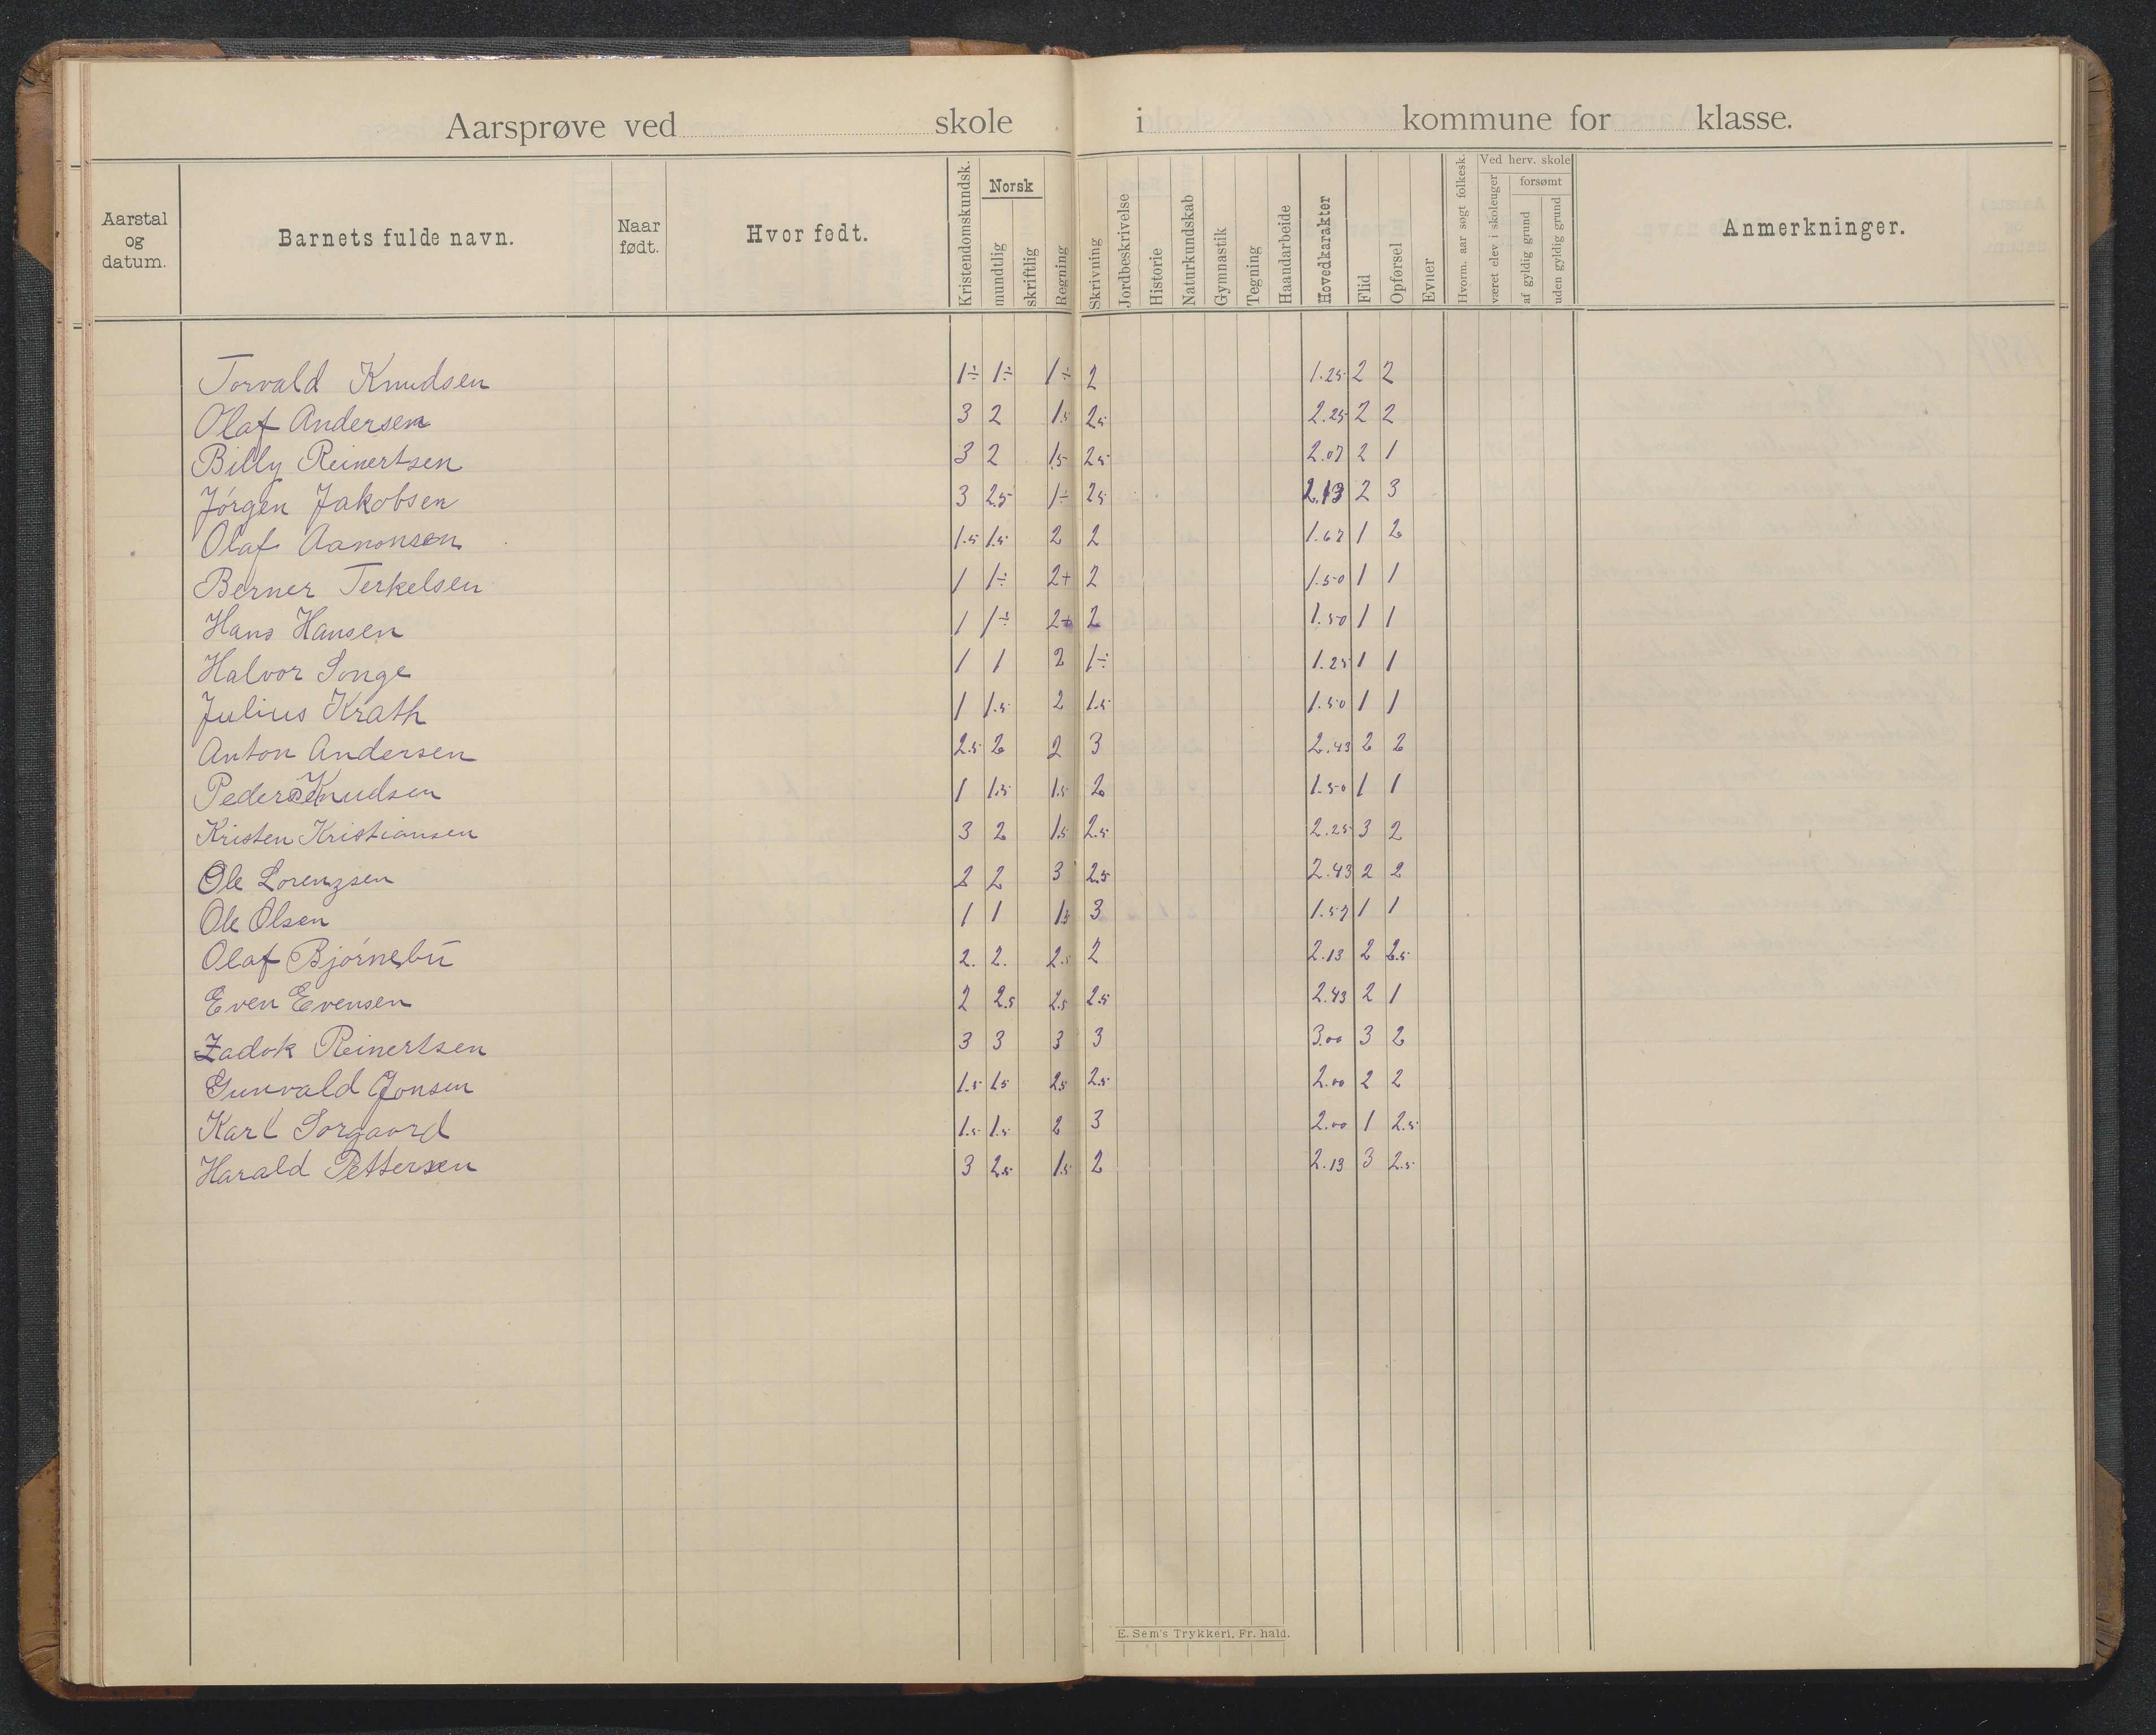 Aarsprøve ved skole i kommune for klasse.
Aarstal og datum. Barnets fulde navn. Naar født. Hvor født. Kristendomskundsk. Norsk mundtlig skriftlig Regning Skrivning Jordbeskrivelse Historie Naturkundskab Gymnastik Tegning Haandarbeide Hovedkarakter Flid Opførsel Evner Hvorm. aar søgt folkesk. Ved herv. skole været elev i skoleuger forsømt af gyldig grund uden gyldig grund Anmerkninger.
Torvald Knudsen 1÷ 1÷ 1÷ 2 1.25 2 2
Olaf Andersen 3 2 1.5 2.5 2.25 2 2
Billy Reinertsen 3 2 1.5 2.5 2.07 2 1
Jörgen Jakobsen 3 2.5 1÷ 2.5 2.13 2 3
Olaf Aanonsen 1.5 1.5 2 2 1.67 1 2
Berner Terkelsen 1 1÷ 2+ 2 1.50 1 1
Hans Hansen 1 1÷ 2+ 2 1.50 1 1
Halvor Songe 1 1 2 1÷ 1.25 1 1
Julius Krath 1 1.5 2 1.5 1.50 1 1
Anton Andersen 2.5 2 2 3 2.43 2 2
Peder Knudsen 1 1.5 1.5 2 1.50 1 1
Kristen Kristiansen 3 2 1.5 2.5 2.25 3 2
Ole Lorenzsen 2 2 3 2.5 2.43 2 2
Ole Olsen 1 1 1.5 3 1.57 1 1
Olaf Bjørnebu 2. 2. 2.5 2 2.13 2 2.5
Even Evensen 2 2.5 2.5 2.5 2.43 2 1
Zadok Reinertsen 3 3 3 3 3.00 3 2
Gunvald Jonsen 1.5 1.5 2.5 2.5 2.00 2 2
Karl Sorgaard 1.5 1.5 2 3 2.00 1 2.5
Harald Pettersen 3 2.5 1.5 2 2.13 3 2.5
E. Sem's Trykkeri. Fr. hald.